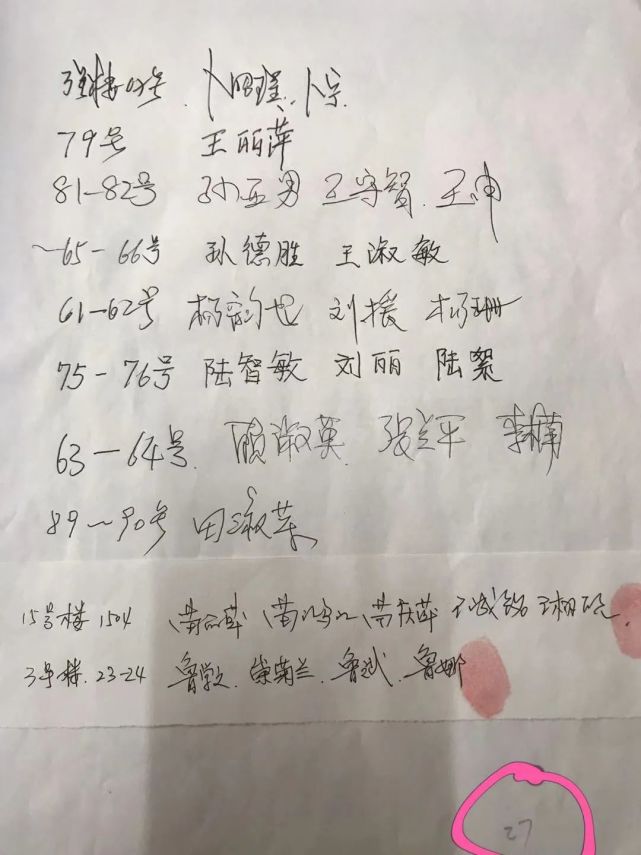 79号 王丽萍
81-82号 孙亚男 王守智. 王坤
65-66号 孙德胜 王淑敏
61-62号 杨韵也 刘援 杨珊
75-76号 陆智敏 刘丽 陆絮
63-64号. 顾淑英. 张兰平 李楠
89~90号 田淑英
15号楼1504
3号楼.23-24 鲁学文. 柴菊兰. 鲁斌. 鲁娜
27